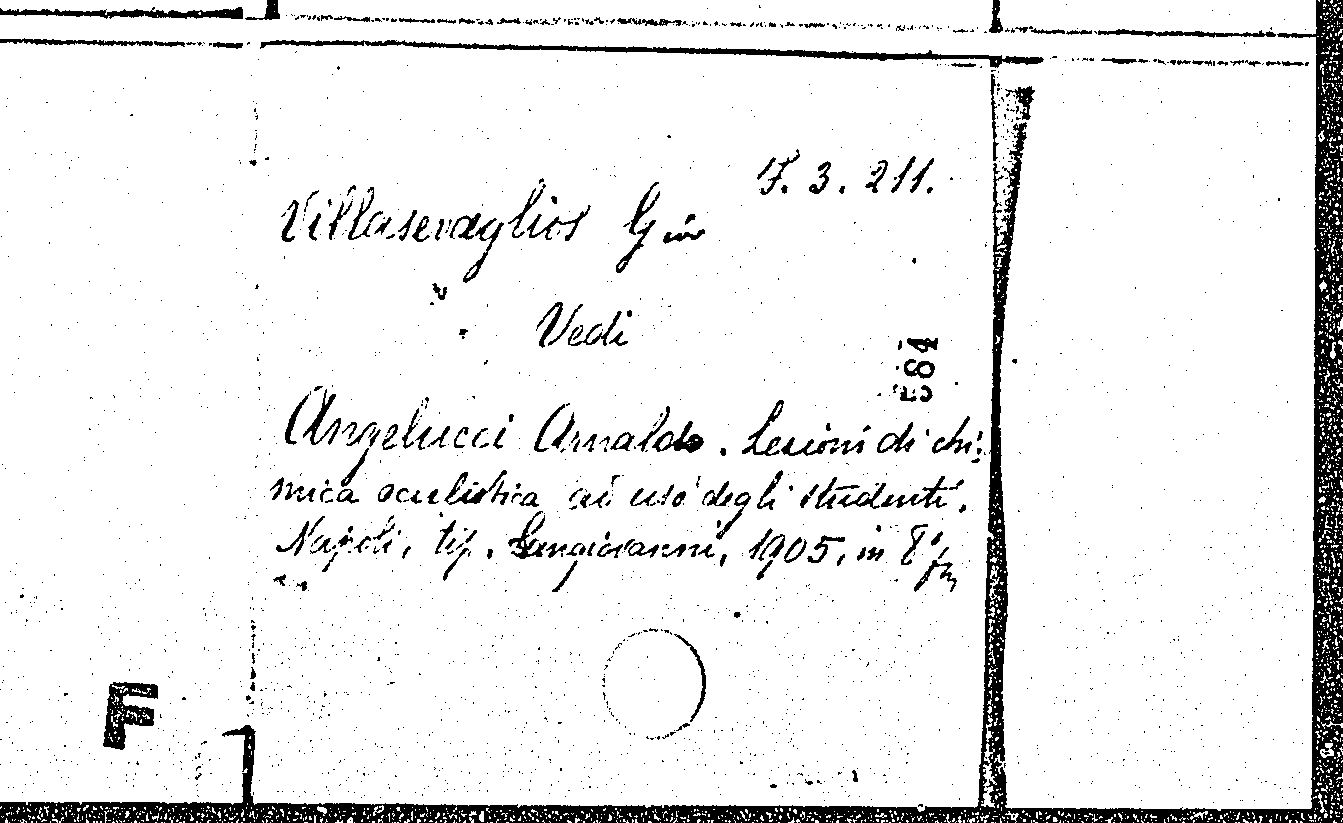 F. 3. 211.
Villasevaglios Gio
Vedi
584
Angelucci Arnaldo. Lezioni di cli-
mica oculistica ad uso degli studenti.
Napoli, tip. Sangiovanni, 1905, in 8°
F